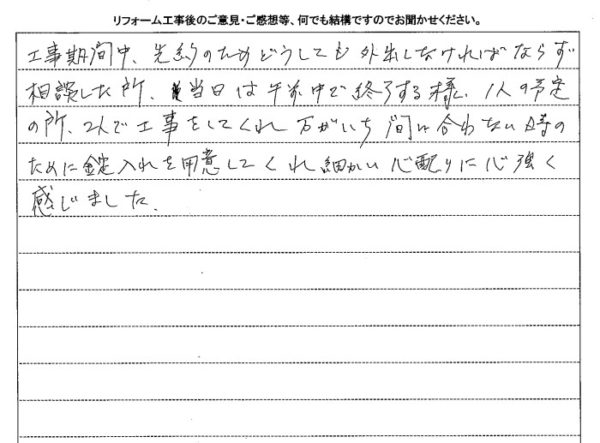 リフォーム工事後のご意見・ご感想等、何でも結構ですのでお聞かせください。
工事期間中、先約のためどうしても外出しなければならず
相談した所、当日は午前中で終了する様、1人の予定
の所、2人で工事をしてくれ万がいち間に合わない時の
ために錠入れを用意してくれ細かい心配りに心強く
感じました。